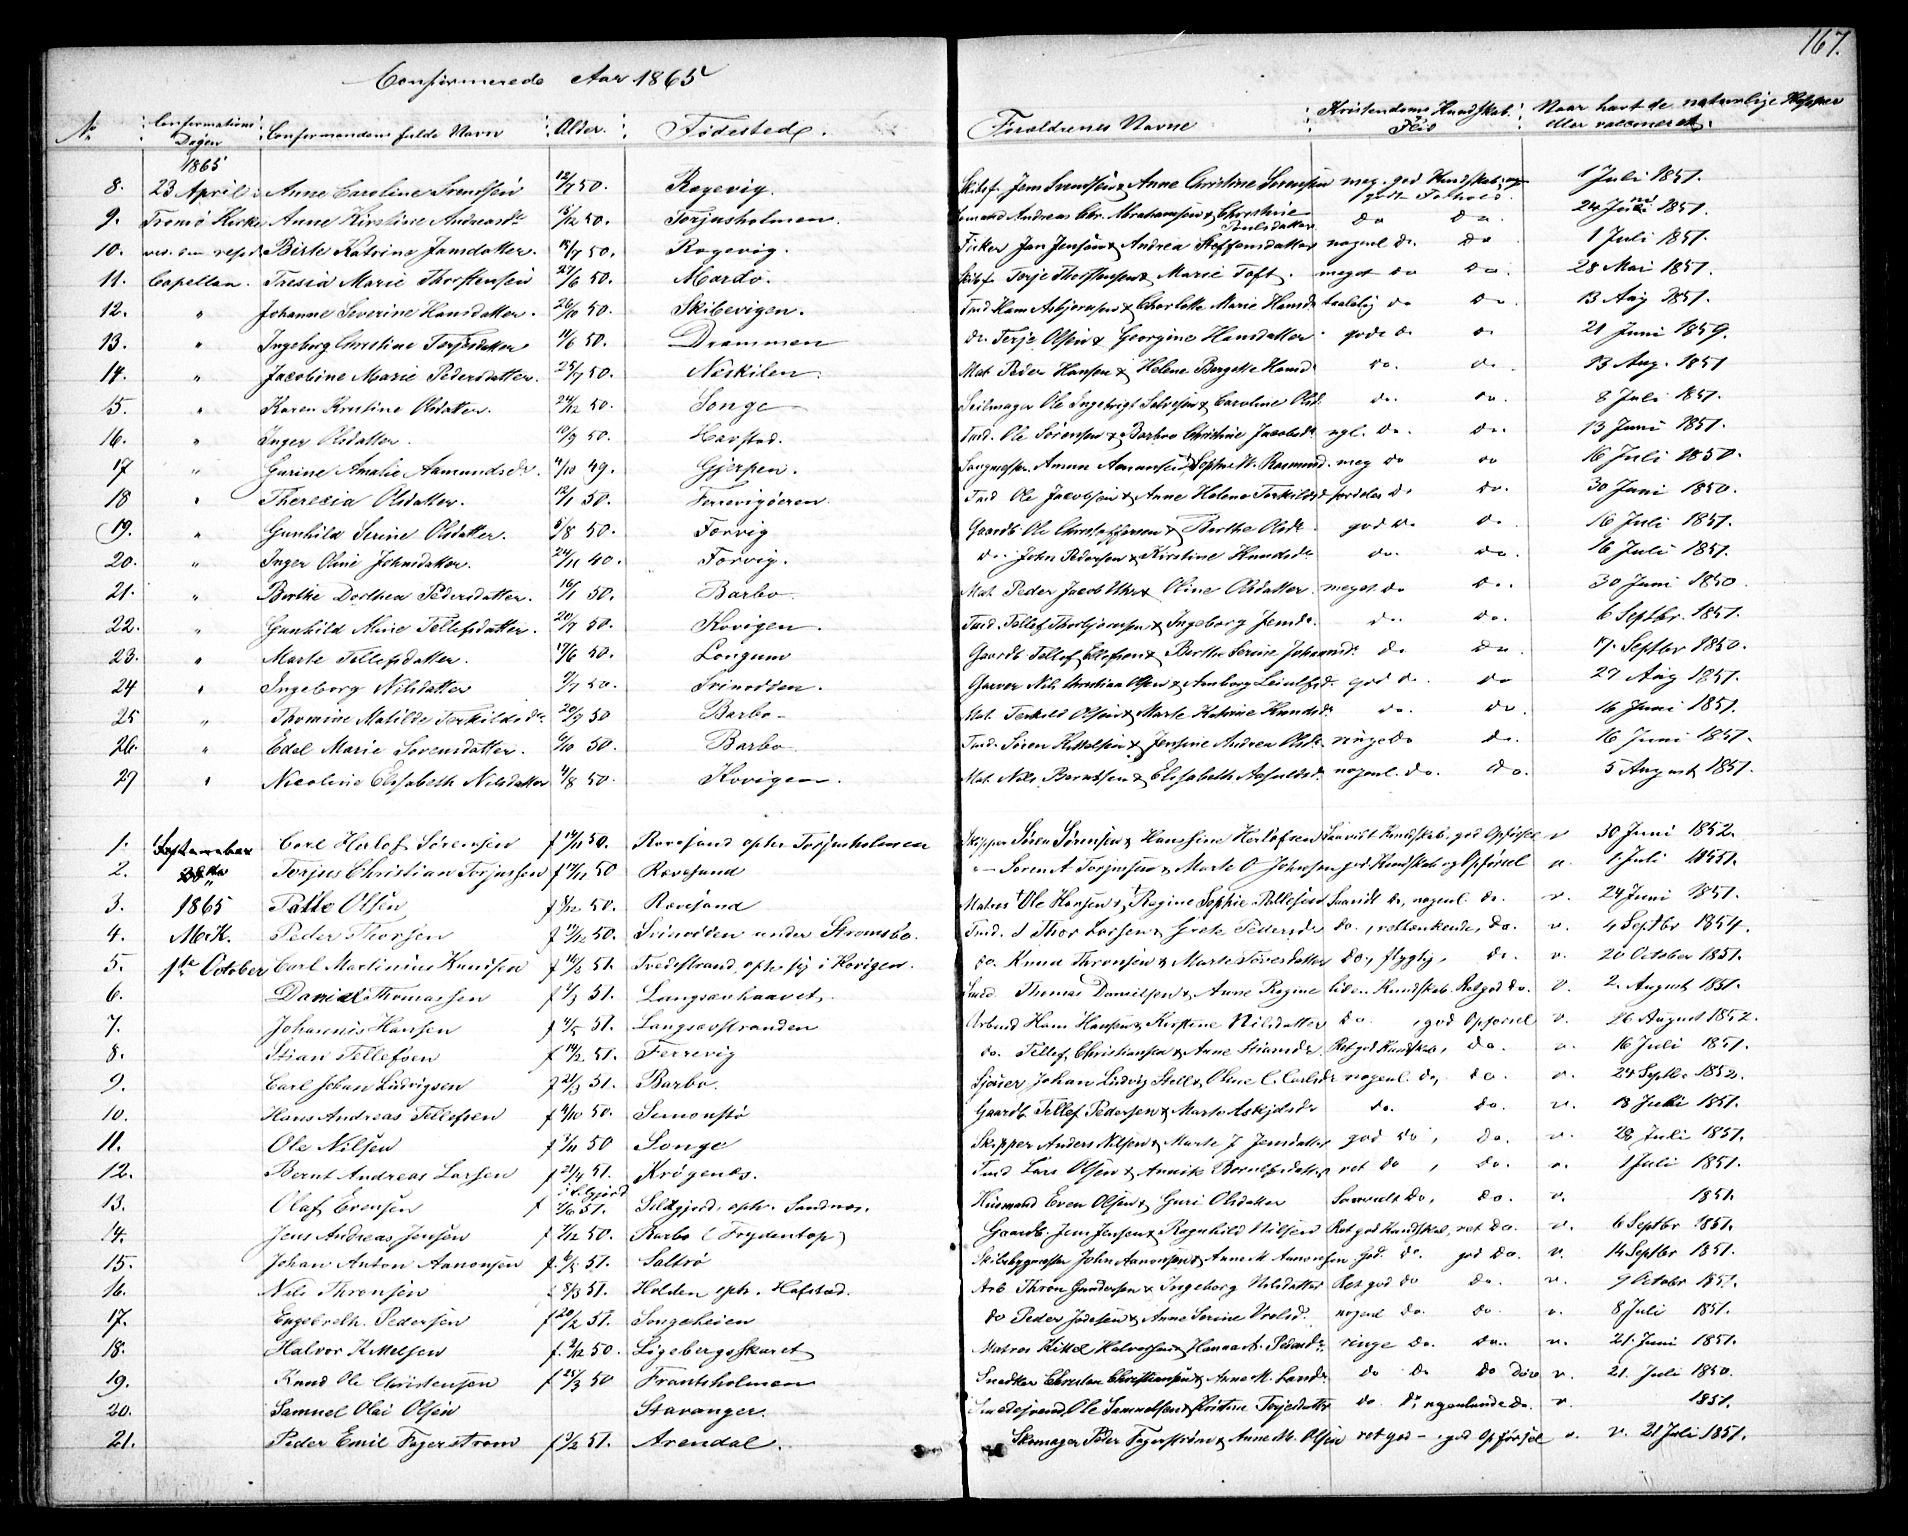 167.
Confirmerede Aar 1865
No Confirmations Dagen Confirmandens fulde Navn Alder. Fødested. Forældrenes Navne Kristendoms Kundskab. Flid Naar havt de naturlige Kopper eller vaccineret.
1865
8. 23 April Anne Caroline Svendsen 12/7 50. Ragevig. Skibsf. Jens Svendsen & Anne Christine Sørensen meg. god Kundskab, og godt Forhold. 1 Juli 1851.
9. Tromø Kirke Anne Kirstine Andreasdr 5/12 50. Torjusholmen. Andreas Chr. Abrahamsen & Christine Poulsdatter do do. 24 Juni 1851.
10. ved den resid. Birte Katrine Jansdatter. 18/7 50. Ragevig. Fisker Jan Jensen & Andrea Steffensdatter nogenl. do. do 1 Juli 1851.
11. Capellan. Tresia Marie Thorstensen 27/6 50. Mærdø. Skibsf. Terje Thorstensen & Marie Toft. meget do do. 28 Mai 1851.
12. " Johanne Severine Hansdatter. 26/10 50. Skibevigen. Tmd Hans Asbjørnsen & Charlotte Marie Hansdr taalelig do do. 13 Aug 1851.
13. " Ingeborg Christine Terjesdatter 11/6 50. Drammen do. Terje Olsen & Georgine Hansdatter gode do o. 21 Juni 1859.
14. " Jacobine Marie Pedersdatter. 25/7 50. Neskilen. Mat. Peder Hansen & Helene Bergette Hansd. do. do. 13 Aug. 1851
15. " Karen Kristine Olsdatter. 24/12 50. Songe Seilmager Ole Ingebrigt Salvesen & Caroline Olsd. do. do. 8 Juli 1851.
16. " Inger Olsdatter. 10/9 50. Havstad. Tmd. Ole Sørensen & Barbro Christine Jacobsdr ngl. do. do. 13 Juni 1851.
17 " Gurine Amalie Aamundsdr. 4/10 49. Gjerpen. Amun Aamunsen & Sophie W. Rasmund. meg do do 16 Juli 1850.
18 " Theresia Olsdatter. 12/1 50. Ferrevigøeren. Tmd Ole Jacobsen & Anne Helene Terkildsd fordeles do do. 30 Juni 1850.
(19. " Gunhild Serine Olsdatter. 5/8 50. Forvig Gaardb. Ole Christophersen & Berthe Olsdr. god do do. 16 Juli 1851.
20. " Inger Oline Johnsdatter. 24/11 40. Forvig. do. John Pedersen & Kirstine Knudsdr do. do. 16 Juli 1851.
21. " Berthe Dorthea Pedersdatter. 16/1 50. Barbo Mat. Peder Jacob Uhr & Oline Olsdatter. meget. do do. 30 Juni 1850.
22. " Gunhild Aline Tellefsdatter. 20/7 50. Kovigen. Tmd. Tellef Thorbjørnsen & Ingeborg Jensdr. do. do. 6 Septbr. 1851.
23. " Marte Tellefsdatter. 17/6 50. Longum Gaardb. Tellef Ellefsen & Berthe Serine Johannsdr. do do. 17. Septbr 1850.
24 " Ingeborg Nilsdatter 9/7 50. Svinodden. Garver Nils Christian Olsen & Aanborg Leiulfsd. god do. do 27 Aug 1851.
25 " Thomine Matilde Terkildsdr. 20/9 50 Barbo. Mat. Terkild Olsen & Marte Katrine Knudsdr do. do. 16 Juni 1851.
26. " Edel Marie Sørensdatter. 6/10 50. Barbo Tmd. Søren Kittelsen & Jensine Andrea Olsdr ringe do do. 16 Juni 1851.
27 " Nicoline Elisabeth Nilsdatter 4/8 50. Kovigen. Mat. Nils Berntsen & Elisabeth Asfuldsd. nogenl. do. do. 5 August 1851.
1. September Carl Herlof Sørensen f 14/11 50. Rævesand opht. Torjusholmen Skipper Søren Sørensen & Hansine Herlofsen Saavidt Kundskab, god Opførsel v. 30 Juni 1852.
2. Torjus Christian Torjussen f 17/11 50 Rævesand " – Søren A Torjussen & Marte O Johnsen god Kundskab og Opførsel v. 1. Juli 1851.
3. 1865 Palle Olsen f 8/12 50. Rævesand Matros Ole Hansen & Regine Sophie Pallesen Saavidt do, nogenl. do. v. 24 Juni 1851.
4. M.K. Peder Thorsen f 13/12 50. Svinodden under Strømsbo. Tmd. Thor Larsen & Grete Pedersdr do., veltænkende, do. v. 4 Septbr 1854.
5. 1ste October Carl Martinius Knudsen f 16/2 51. Tvedestrand opht. pj i Kovigen. do. Knud Thronsen & Marte Torersdatter do, flygtig, do. v. 20 October 1851.
6. Daniel Thomassen f 1/3 51. Langsævhaavet Smed Thomas Danielsen & Anne Regine liden Kundskab. Ret god do. v. 2. August 1851.
7. Johannis Hansen f 4/5 51. Langsævstranden Arbmd Hans Hansen & Kirstine Nilsdatter do. , god Opførsel v. 26 August 1852.
8. Stian Tellefsen f 14/2 51. Ferrevig do. Tellef Christiansen & Anne Stiansdr Ret god Kundskab, do. v. 16 Juli 1851.
9. Carl Johan Ludvigsen f 21/3 51. Barbo. Sjøuer Johan Ludvig Stell & Olene C. Carlsdr nogenl. do, do. v. 24 Septbr 1852.
10. Hans Andreas Tellefsen f 6/10 50. Semonstø Gaardb. Tellef Pedersen & Marte Askjelsdr do. do. v. 18 Juli 1851.
11. Ole Nilsen f 3/11 50 Songe Skipper Anders Nilsen & Marte J Jensdatter god do, do. v. 28 Juli 1851.
12. Bernt Andreas Larsen f 21/4 51. Krøgenæs. Tmd Lars Olsen & Annike Berulfsdatter ret do , do. v. 1 Juli 1851.
13. Olaf Evensen f 2/6 51. Sildgjord, opht. Sandnæs. Husmand Even Olsen & Guri Olsdatter Saavidt do, do. v. 1851.
14. Jens Andreas Jensen f 7/12 50 Barbo (Frydentop) Gaardb. Jens Jensen & Ragnhild Nilsen Ret god Kundskab, ret do. v. 6 Septbr 1851.
15. Johan Anton Aanonsen f. 6/5 51. Saltrø Skibsbygmester John Aanonsen & Anne M. Aanonsen god. do. god do. v. 14 Septbr 1851.
16. Nils Thronsen f 8/3 51. Holden opht. Hafstad. Arb Thron Gundersen & Ingeborg Nilsdatter Ret god do do. v. 9 October 1851.
17. Engebreth. Pedersen f 20/2 51. Songeheien do Peder Jodesen & Anne Serine Vrolsd. nogenl do. do. v. 8 Juli 1851.
18. Halvor Kittelsen f. 9/12 50. Ligebergsskaret Matros Kittel Halvorsen & Hanna A. Pedersdr ringe do. do. v. 21. Juni 1851.
19. Knud Ole Christensen f 25/3 50 Frantsholmen Snedker Christen Christiansen & Anne M. Larsdr do do do døv v. 21. Juli 1850.
20. Samuel Olai Olsen Stavanger. Ole Samuelsen & Kristine Terjesdatter do do, nogenlunde do. v. 1851.
21. Peder Emil Fagerstrøm f 5/2 51. Arendal. Skomager Peder Fagerstrøm & Anne M. Olsen ret god – , god Opførsel v. v. 21 Juli 1851.